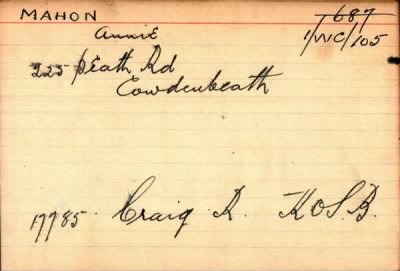 MAHON
687
Annie
1/WC/105
225 Beath Rd
Cowdenbeath
17785 Craig R. K.O.S.B.